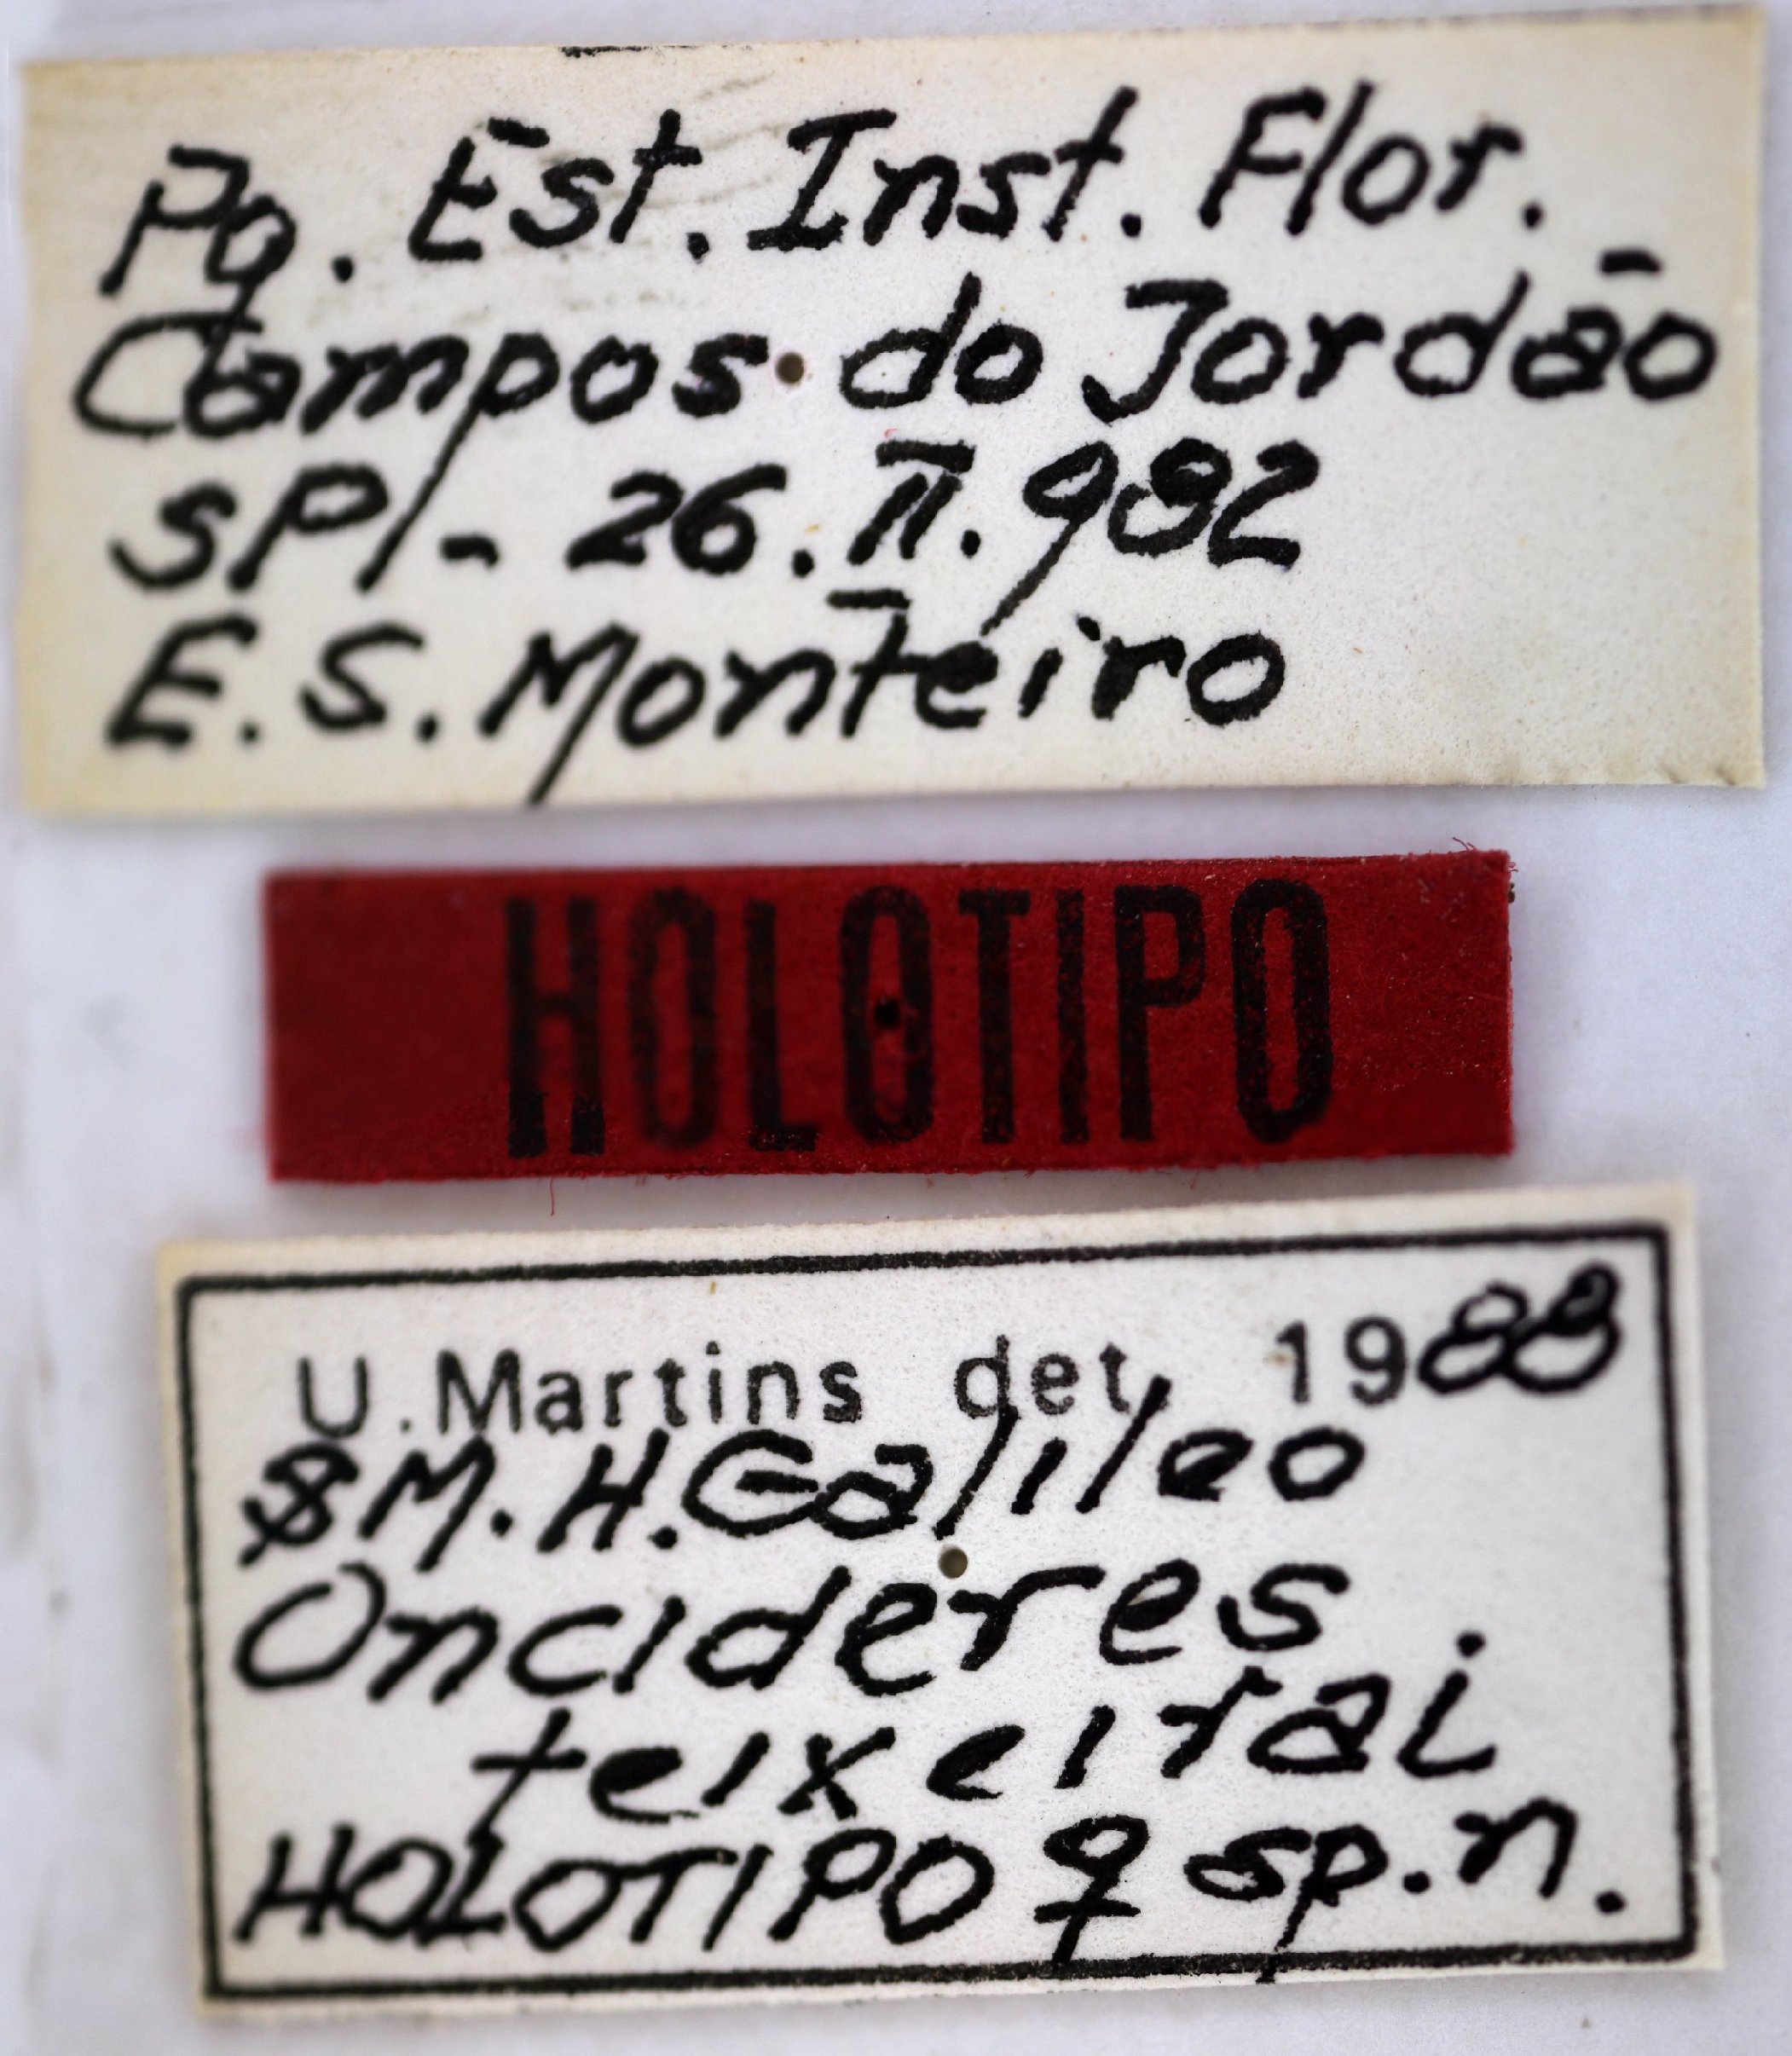 Pq. Est. Inst. Flor.
Campos do Jordão
SP/- 26.II.982
E.S. Monteiro
HOLOTIPO
U. Martins det. 1988
& M.H. Galileo
Oncideres
teixeirai
HOLOTIPO ♀ sp.n.